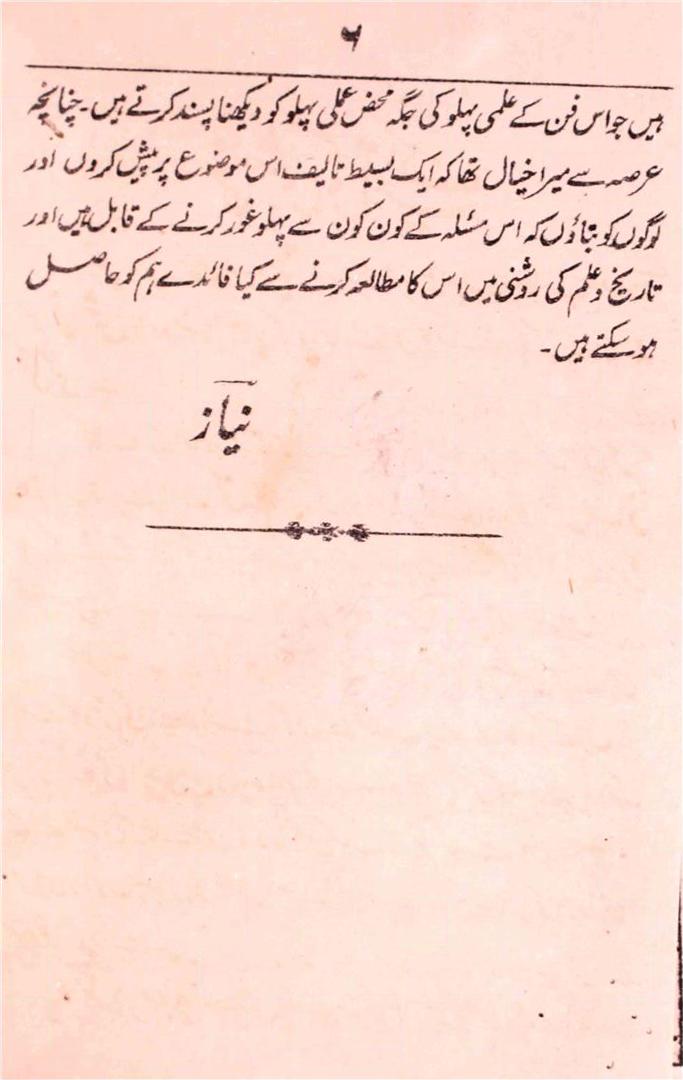 ۶
ہیں جو اس فن کے علمی پہلو کی جگہ محض عملی پہلو کو دیکھنا پسند کرتے ہیں۔ چنانچہ
عرصہ سے میرا خیال تھا کہ ایک بسیط تالیف اس موضوع پر پیش کروں اور
لوگوں کو بتاؤں کہ اس مسئلہ کے کون کون سے پہلو غور کرنے کے قابل ہیں اور
تاریخ و علم کی روشنی میں اس کا مطالعہ کرنے سے کیا فائدے ہم کو حاصل
ہو سکتے ہیں۔
نیاز